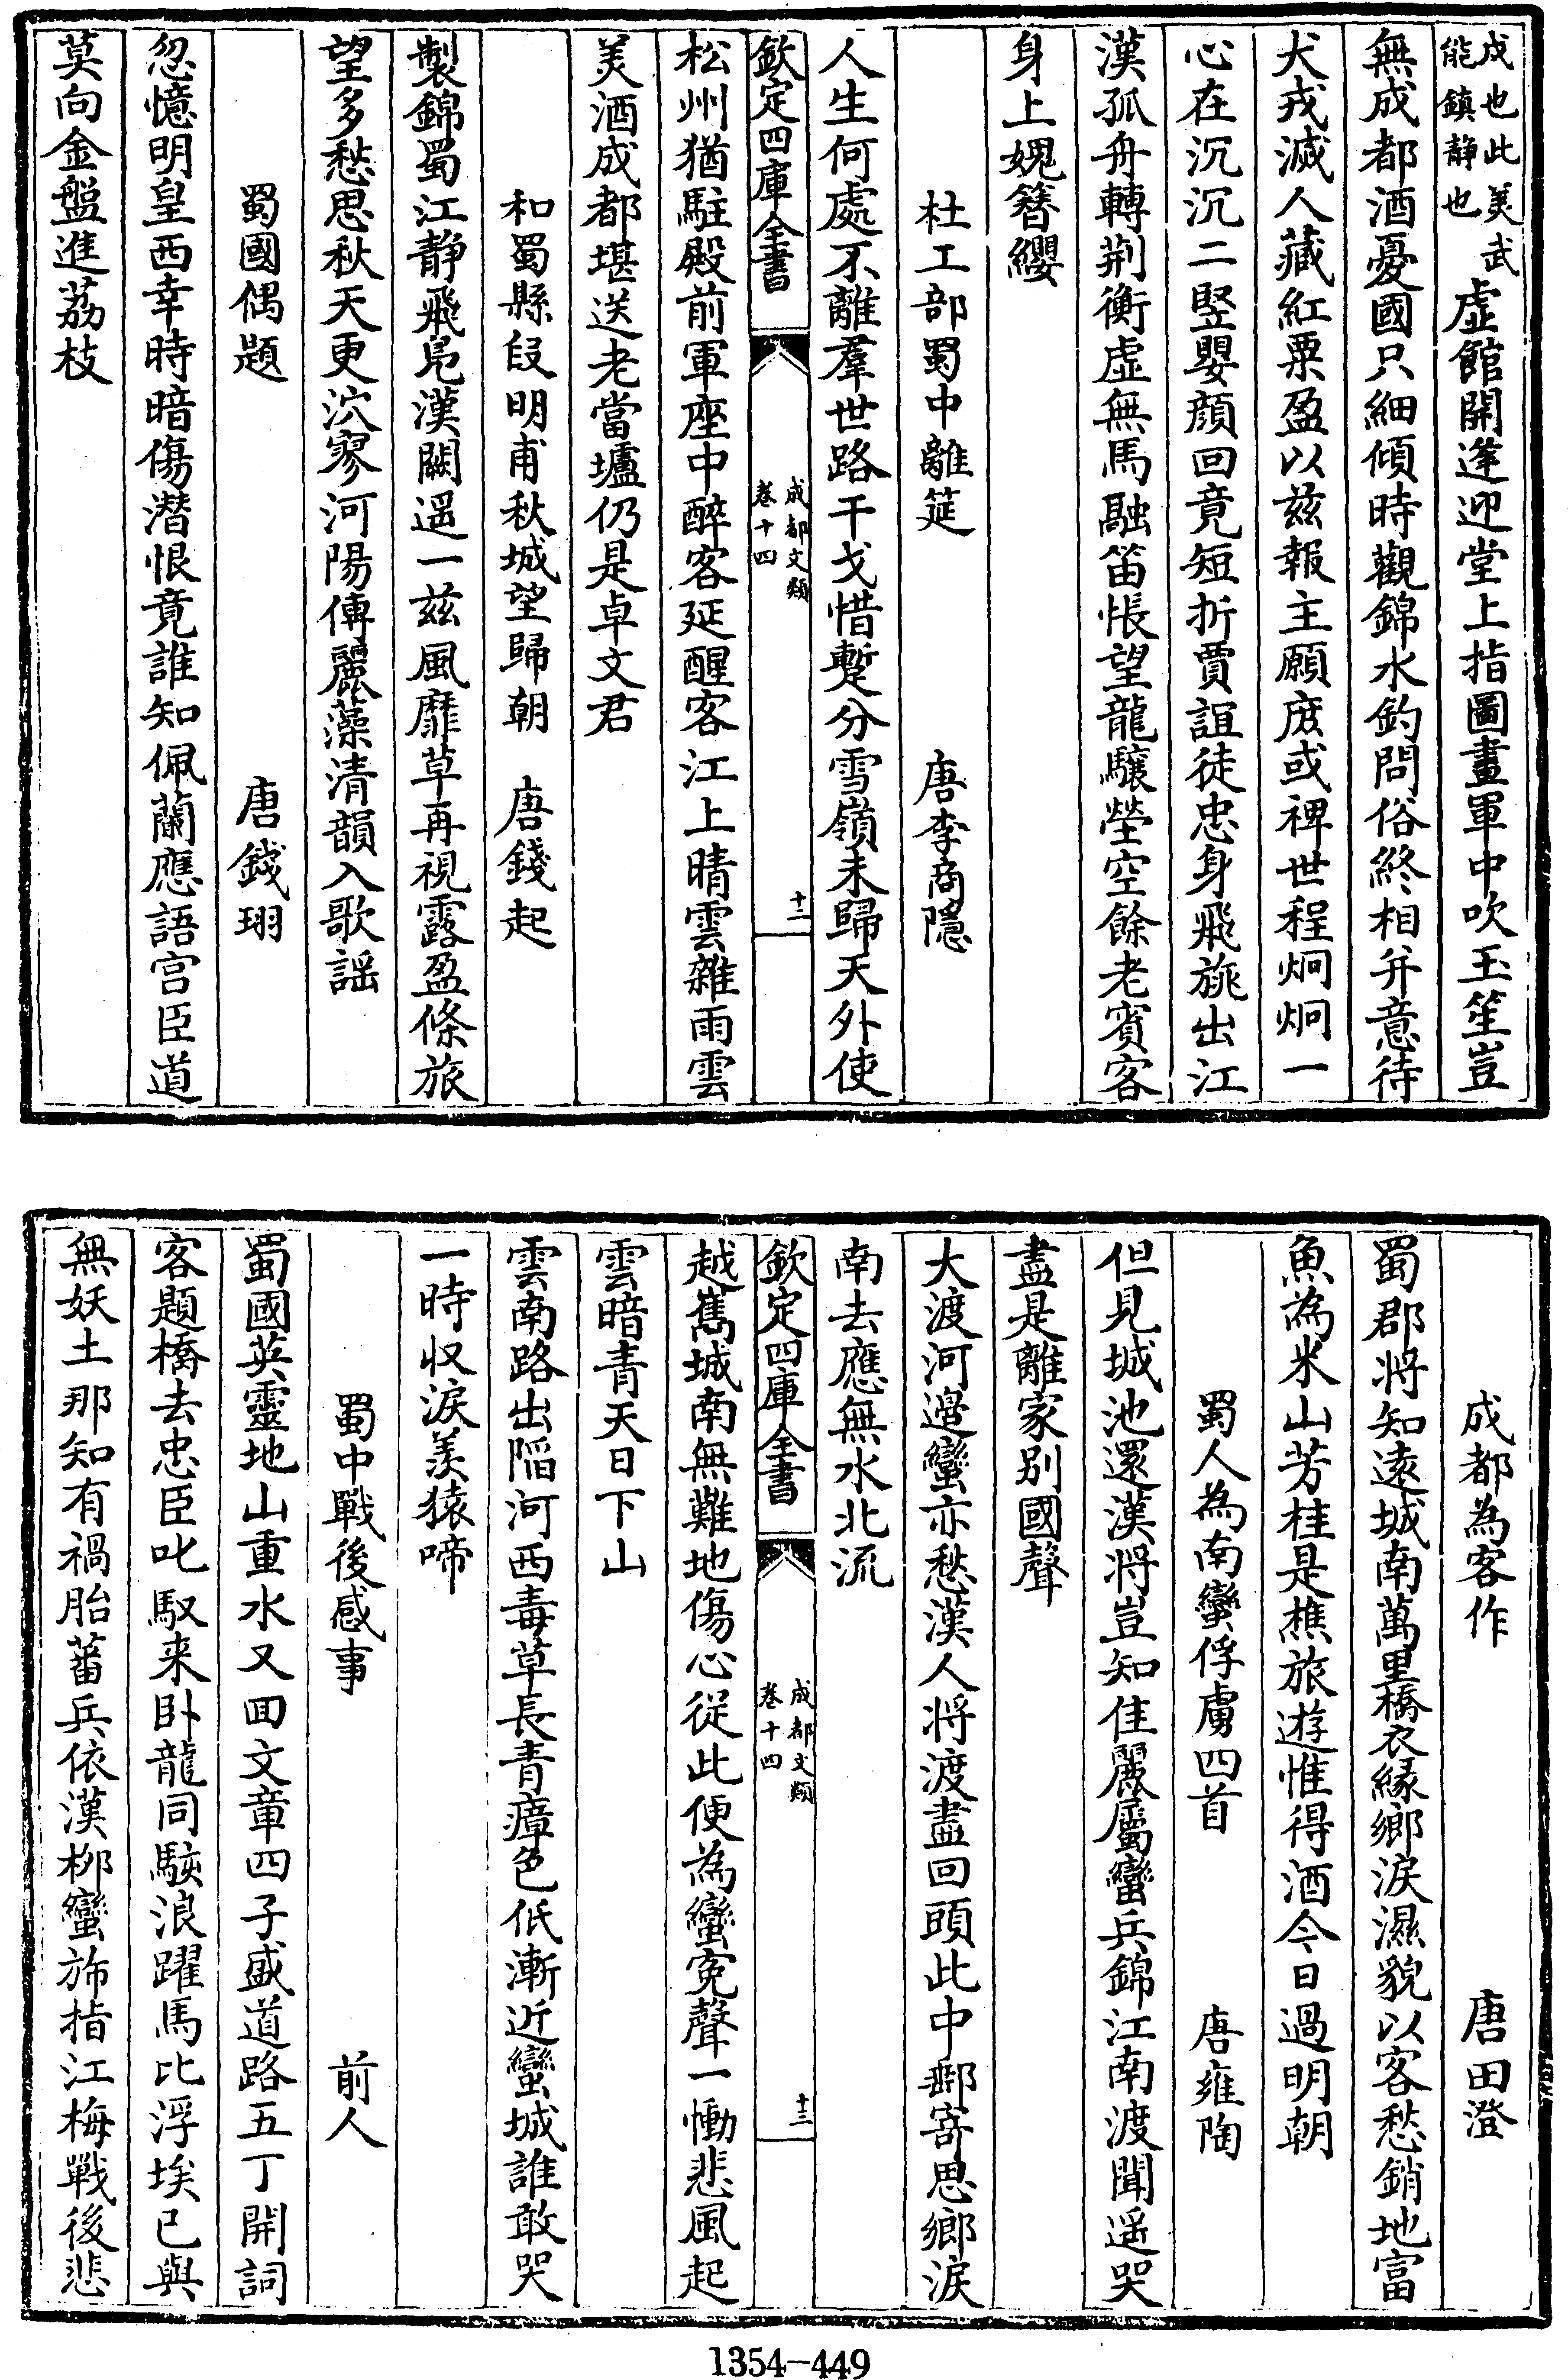 成也此美武
能鎮静也
虛館開逢迎堂上指圖畫軍中吹玉笙豈
無成都酒憂國只細傾時觀錦水釣問俗終相并意待
犬戎滅人藏紅粟盈以兹報主願庶或裨世程炯炯一
心在沉沉二竪嬰顔回竟短折賈誼徒忠身飛旐出江
漢孤舟轉荆衡虛無馬融笛悵望龍驤塋空餘老賓客
身上媿簪纓
杜工部蜀中離筵　唐李商隱
人生何處不離羣世路干戈惜蹔分雪嶺未歸天外使
欽定四庫全書　成都文類　卷十四　十二
松州猶駐殿前軍座中醉客延醒客江上晴雲雜雨雲
美酒成都堪送老當壚仍是卓文君
和蜀縣段明甫秋城望歸朝　唐錢起
製錦蜀江静飛鳬漢闕遥一兹風靡草再視露盈條旅
望多愁思秋天更泬寥河陽傳麗藻清韻入歌謡
蜀國偶題　唐錢珝
忽憶明皇西幸時暗傷潛恨竟誰知佩蘭應語宫臣道
莫向金盤進荔枝
成都為客作　唐田澄
蜀郡將知遠城南萬里橋衣緣鄉淚濕貌以客愁銷地富
魚為米山芳桂是樵旅遊惟得酒今日過明朝
蜀人為南蠻俘虜四首　唐雍陶
但見城池還漢將豈知佳麗屬蠻兵錦江南渡聞遥哭
盡是離家别國聲
大渡河邉蠻亦愁漢人將渡盡回頭此中郵寄思鄉淚
南去應無水北流
欽定四庫全書　成都文類　卷十四　十三
越雋城南無難地傷心從此便為蠻寃聲一慟悲風起
雲暗青天日下山
雲南路出陷河西毒草長青瘴色低漸近蠻城誰敢哭
一時収淚羡猿啼
蜀中戰後感事　前人
蜀國英靈地山重水又回文章四子盛道路五丁開詞
客題橋去忠臣叱馭来卧龍同駭浪躍馬比浮埃已與
無妖土那知有禍胎蕃兵依漢栁蠻斾指江梅戰後悲
1354-449